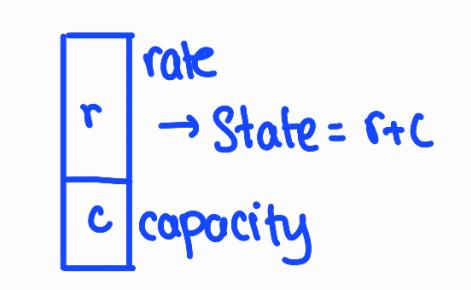 rate
r
→ State = r+c
c capacity